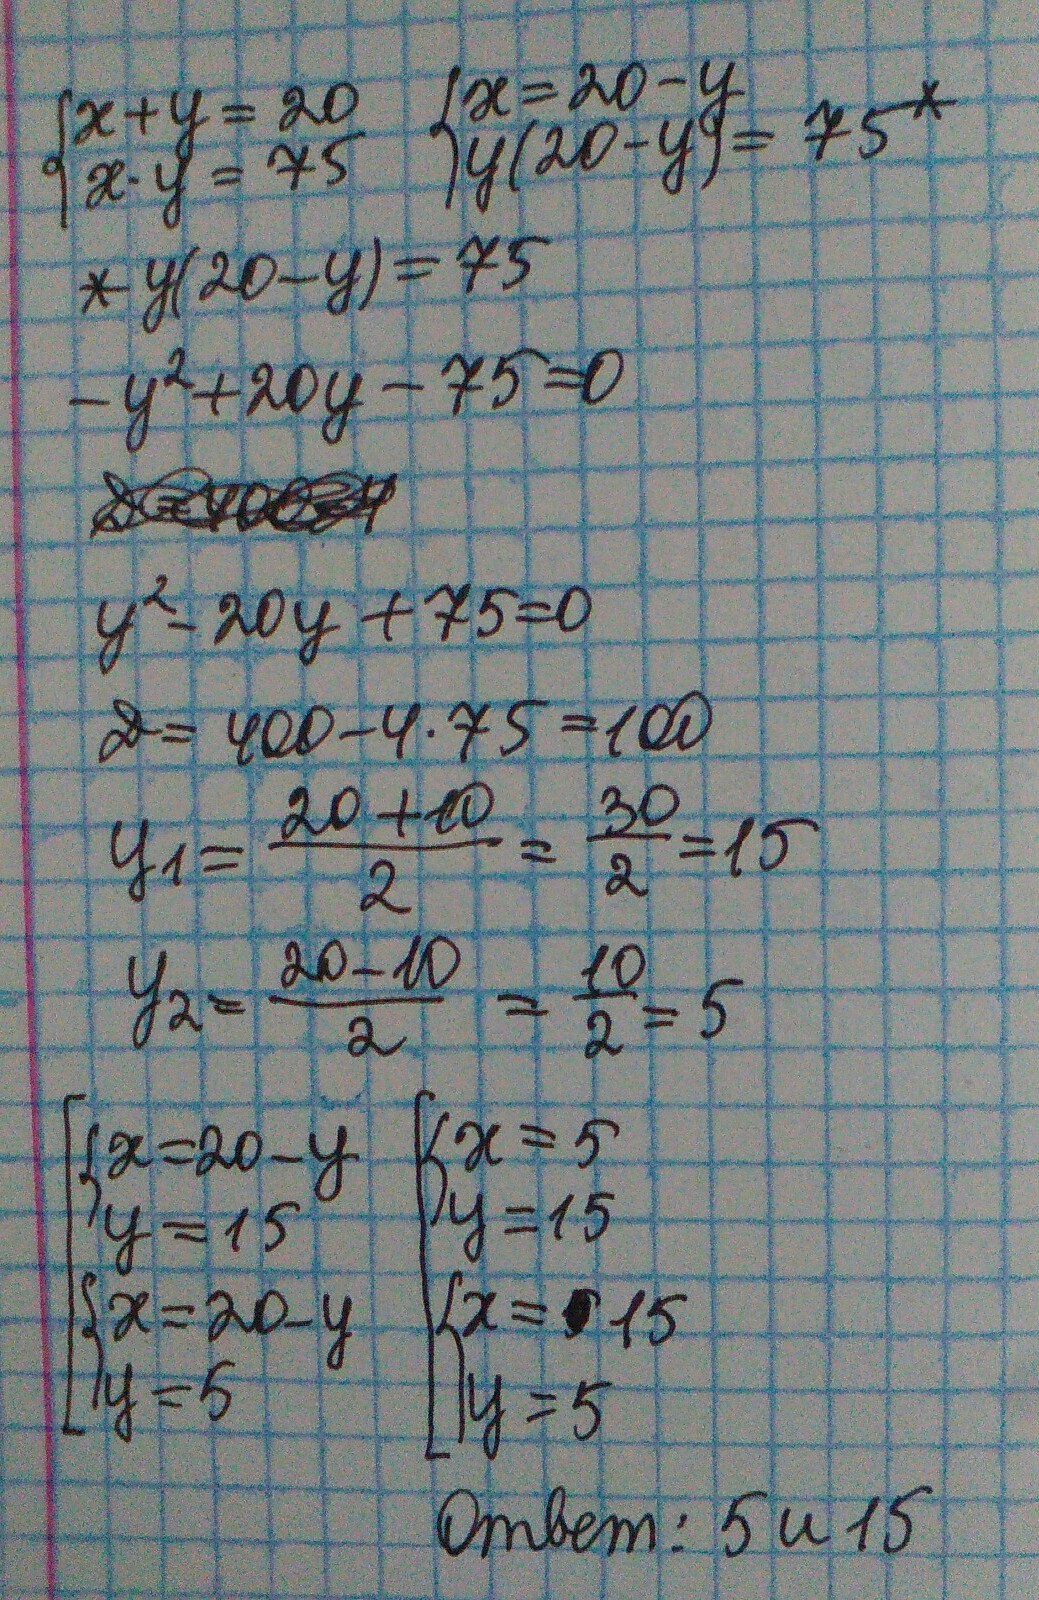 {x+y=20 {x=20-y
{x·y=75 {y(20-y)=75*
* y(20-y)=75
-y²+20y-75=0
y²-20y+75=0
D=400-4·75=100
y₁=(20+10)/2=30/2=15
y₂=(20-10)/2=10/2=5
[{x=20-y [{x=5
{y=15 {y=15
{x=20-y {x=15
{y=5 {y=5
Ответ: 5 и 15